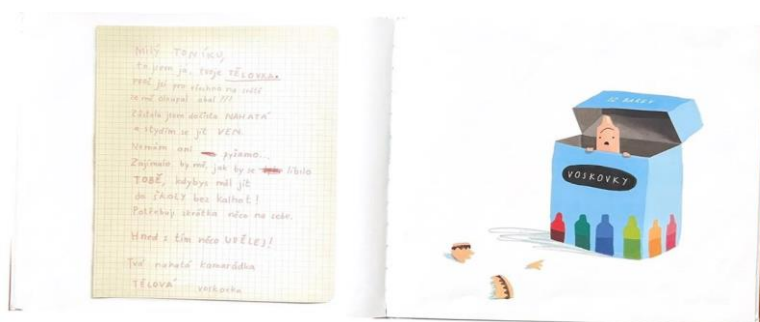 Milý TONÍKU,
to jsem já, tvoje TĚLOVKA.
proč jsi pro všechno na světě
ze mě oloupal obal ???
Zůstala jsem dočista NAHATÁ
a stydím se jít VEN.
Nemám ani pyžamo...
Zajímalo by mě, jak by se líbilo
TOBĚ, kdybys měl jít
do ŠKOLY bez kalhot!
Potřebuji zkrátka něco na sebe.
Hned s tím něco UDĚLEJ!
Tvá nahatá kamarádka
TĚLOVÁ voskovka
12 BAREV
VOSKOVKY